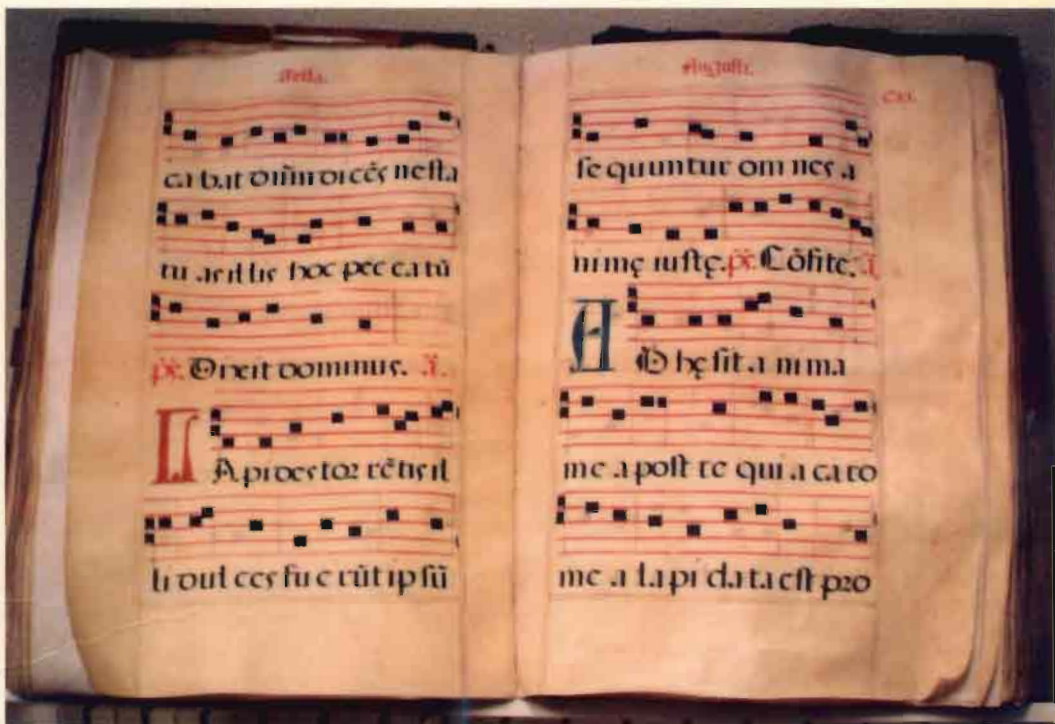 festa.
ca bat dn̄m dicēs ne sta
tu as il lis hoc pec ca tū
ps̄. Dixit dominus. ā.
LApides tor rētis il
li dul ces fu e rūt ip sū
Augusti.
cxi.
se quuntur om nes a
nimę iustę. ps̄. Cōfite. ā.
AD hęsit a ni ma
me a post te qui a ca ro
me a la pi da ta est pro